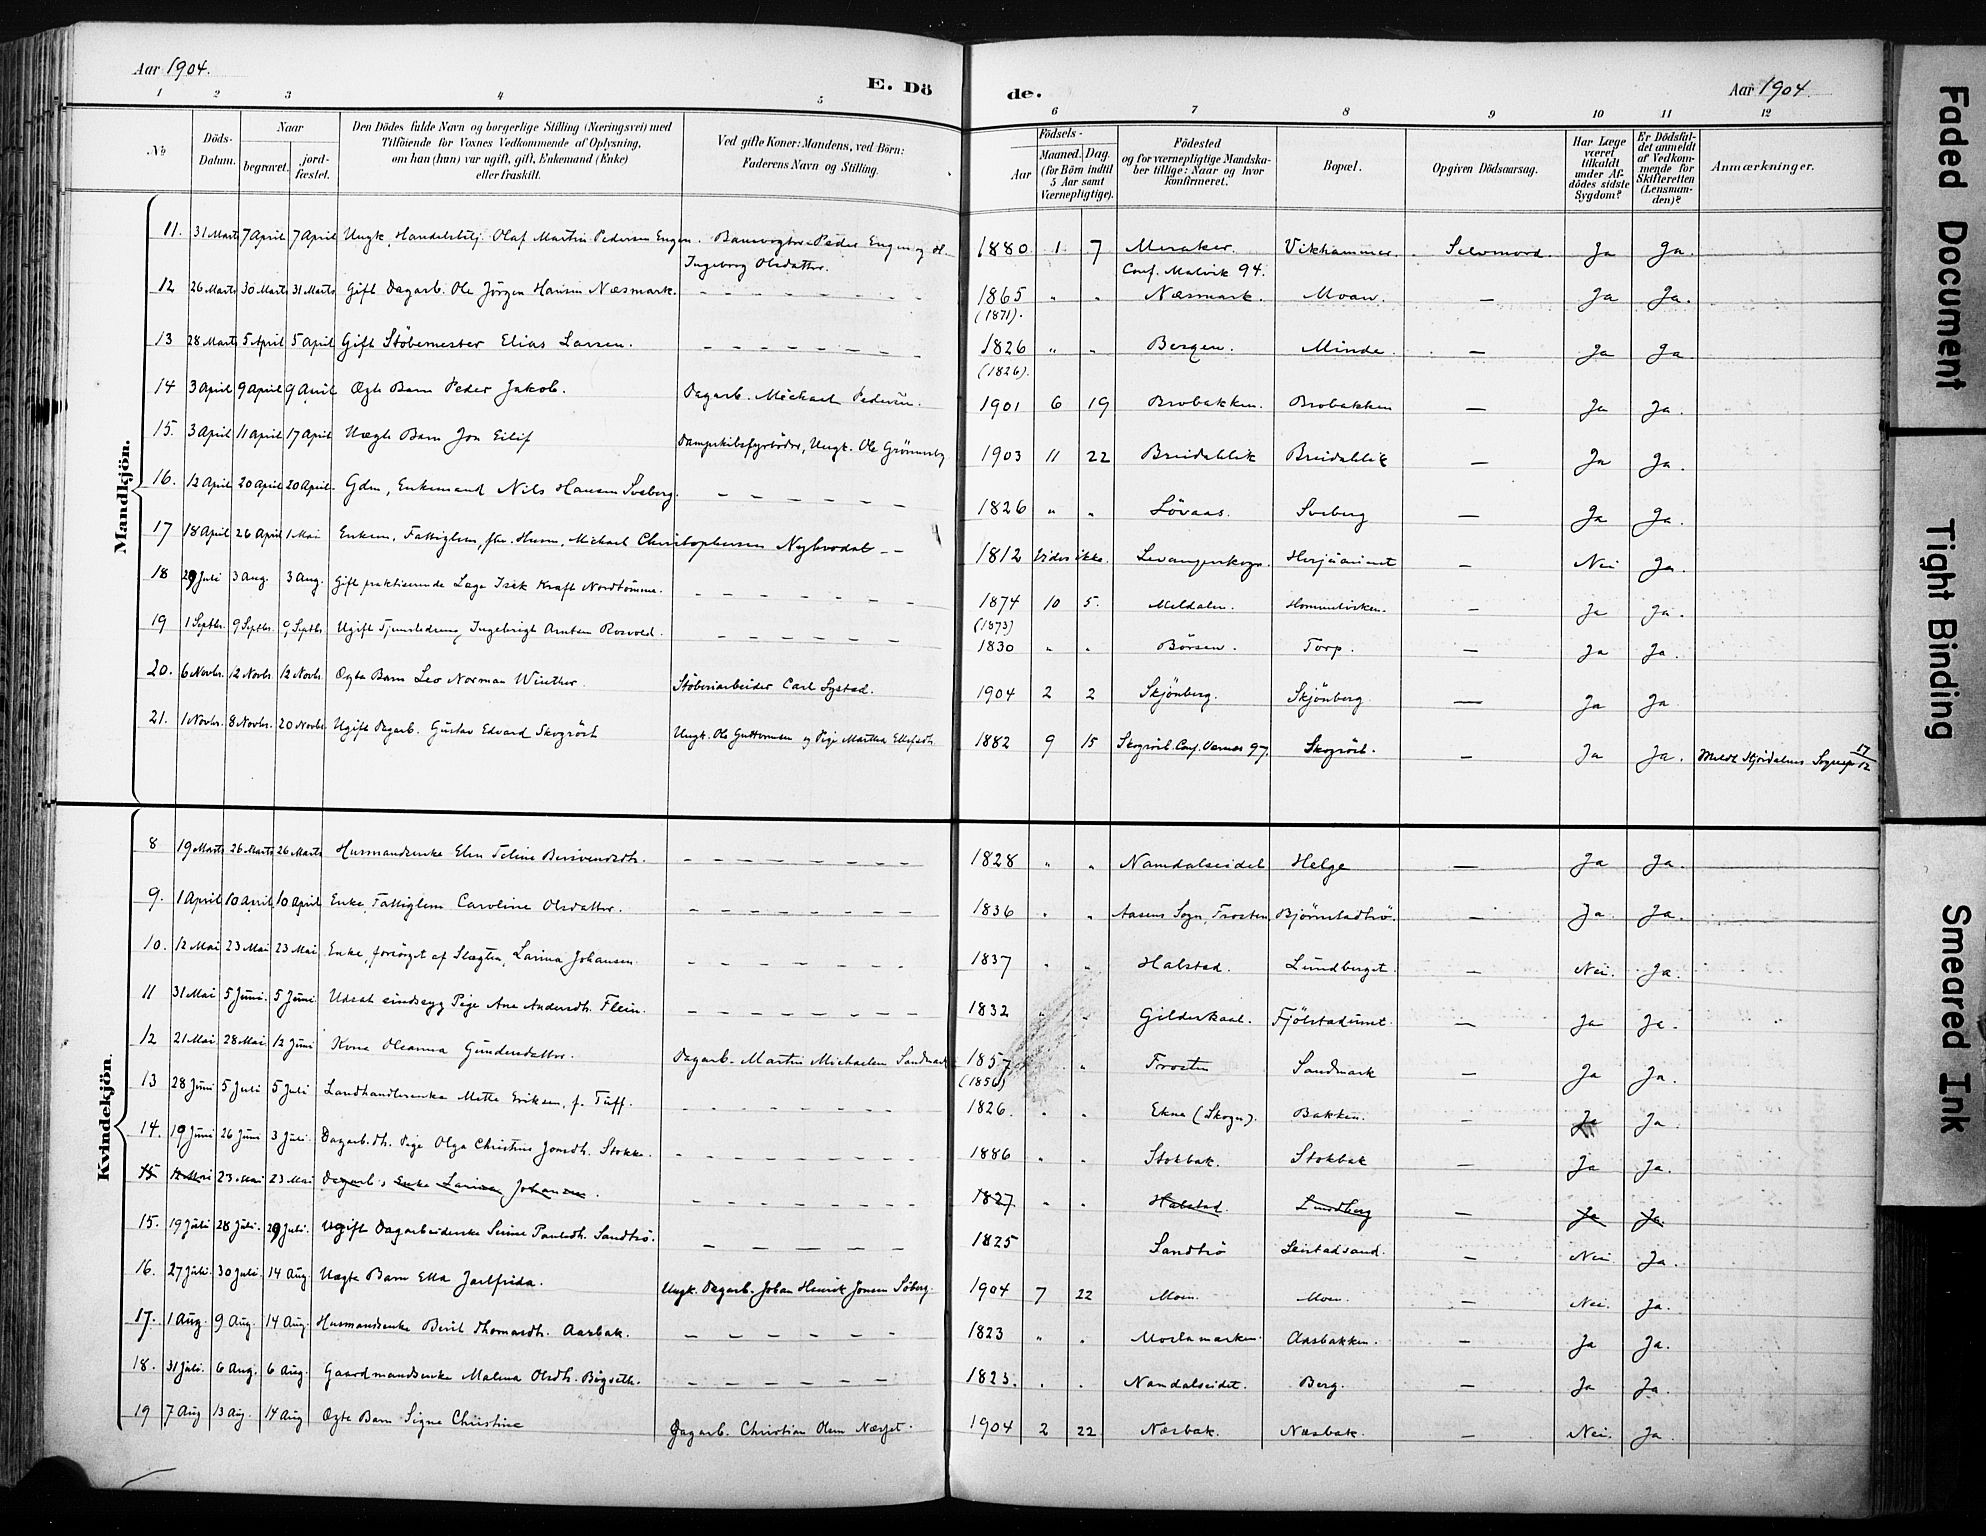 Aar 1904.
E. Dö
de.
Aar 1904.
1 2 3 4 5 6 7 8 9 10 11 12
No
Döds-Datum.
Naar
begravet.
jord-fæstet.
Den Dödes fulde Navn og borgerlige Stilling (Næringsvei) med
Tilföiende for Voxnes Vedkommende af Oplysning,
om han (hun) var ugift, gift, Enkemand (Enke)
eller fraskilt.
Ved gifte Koner: Mandens, ved Börn:
Faderens Navn og Stilling.
Födsels-
Aar
Maaned. Dag.
(for Börn indtil
5 Aar samt
Værnepligtige).
Födested
og for værnepligtige Mandska-
ber tillige: Naar og hvor
konfirmeret.
Bopæl.
Opgiven Dödsaarsag.
Har Læge
været
tilkaldt
under Af-
dödes sidste
Sygdom?
Er Dödsfal-
det anmeldt
af Vedkom-
mende for
Skifteretten
(Lensman-
den)?
Anmærkninger.
Mandkjön.
11. 31 Marts 7 April 7 April Ungk, Handelsbtj Olaf Martin Pedersen Engen. Banevogter Peder Engen og H. 1880 1 7 Meraker. Vikhammer. Selvmord. Ja Ja.
Ingeborg Olsdatter. Conf. Malvik 94.
12 26 Marts 30 Marts 31 Marts Gift Dagarb. Ole Jörgen Hansen Næsmark. 1865 " " Næsmark. Moan. — Ja Ja.
(1871).
13 28 Marts 5 April 5 April Gift Stöbemester Elias Larsen. 1826 " " Bergen. Minde. — Ja Ja
(1826).
14 3 April 9 April 9 April Ægte Barn Peder Jakob. Dagarb. Michael Pedersen. 1901 6 19 Brobakken. Brobakken — Ja Ja.
15. 3 April 11 April 17 April Uægte Barn Jon Eilif Dampskibsfyrböder, Ungk. Ole Grönnesby 1903 11 22 Breidablik Breidablik — Ja Ja.
16. 12 April 20 April 20 April. Gdm, Enkemand Nils Hansen Sveberg. 1826 " " Lövaas. Sveberg — Ja Ja.
17 18 April 26 April 1 Mai Enkem, Fattiglem, Michael Christophersen 1812 Vides ikke. — Nei Ja.
18 29 Juli 3 Aug. 3 Aug. Gift praktiserende Læge Isak Kraft Nordtömme. 1874 10 5. Meldalen. Hommelviken. — Ja Ja.
(1873)
19 1 Septbr. 9 Septbr. 9 Septbr. Ugift Tjenestedreng Ingebrigt Arntsen Rosvold. 1830 " " Börsen. Torp. — Ja Ja.
20. 6 Novbr. 12 Novbr. 12 Novbr. Ægte Barn Leo Norman Winther. Stöberiarbeider Carl Systad. 1904 2 2 Skjönberg. Skjönberg. — Ja Ja
21. 1 Novbr. 8 Novbr. 20 Novbr Ugift Dagarb. Gustav Edvard Skogröst Ungk. Ole Guttormsen og Pige Martha 1882 9 15 Conf. Værnes 97. — Ja Ja. Meldt Stjördalens Sognep 17/12
Kvindekjön.
8 19 Marts 26 Marts 26 Marts Husmandsenke Elen Beresvendsdtr. 1828 " " Namdalseidet Helge — Ja Ja.
9. 1 April 10 April 10 April Enke, Fattiglem Caroline Olsdatter. 1836 " " Aasens Sogn, Frosten Björnstadtrö. — Ja Ja.
10. 12 Mai 23 Mai 23 Mai Enke, forsörget af Slægten, Larina Johansen. 1837 " " Halstad. Lundberget. — Nei. Ja.
11 31 Mai 5 Juni. 5 Juni Udsat sindssyg Pige Ane Andersdtr. Flein. 1832 " " Gildeskaal. Fjölstadunet. — Ja Ja.
12 21 Mai 28 Mai 12 Juni Kona Oleanna Gundersdatter. Dagarb. Martin Michaelsen Sandmark 1857 " Frosten Sandmark — Ja Ja.
(1856)
13 28 Juni 5 Juli 5 Juli Landhandlerenke Mette Eriksen, f. Tuff. 1826. " " Ekne (Skogn). Bakken. — Ja Ja.
14. 19 Juni 26 Juni 3 Juli Dagarb.dtr. Pige Olga Christine Jonsdtr. Stokke. 1886 " " Stokbak. Stokbak — Ja Ja.
15 12 Mai 23 Mai 23 Mai Dagarb.s Enke Larina Johansen. 1827 " " Halstad. Lundberg — Ja Ja.
15. 19 Juli 28 Juli. 29 Juli. Ugift Dagarbeiderske Paulsdtr. Sandtrö. 1825 Sandtrö Leistadsand. — Nei Ja.
16. 27 Juli. 30 Juli. 14 Aug. Uægte Barn Ella Jarlfrida. Ungk. Dagarb. Johan Henrik Jonsen Söberg. 1904 7 22 Moen. Moen. — Nei. Ja.
17. 1 Aug. 9 Aug. 14 Aug. Husmandsenke Berit Thomasdtr. Aasbak. 1823 " " Aasbakken. — Ja Ja.
18. 31 Juli. 6 Aug. 6 Aug. Gaardmandsenke Malena Olsdtr. Bögseth. 1823. " " Namdalseidet. Berg. — Ja Ja.
19 7 Aug 13 Aug. 14 Aug Ægte Barn Signe Christine Dagarb. Christian Olsen 1904 2 22 Næsbak. Næsbak. — Nei. Ja.
Faded Document
Tight Binding
Smeared Ink